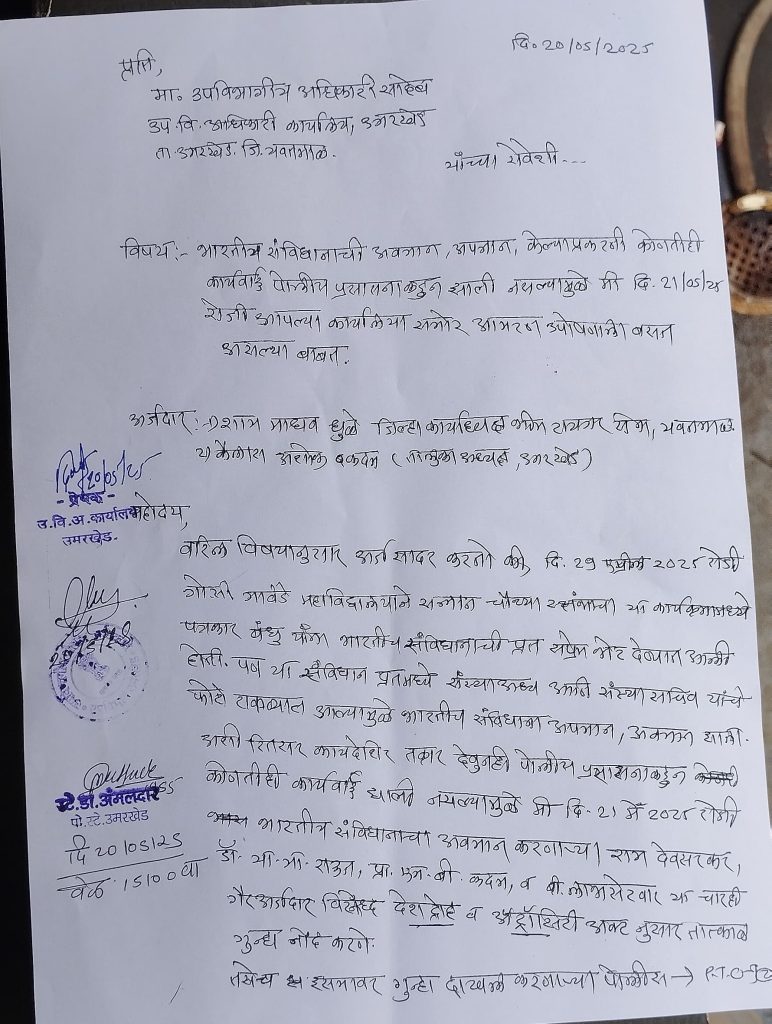 दि. 20/05/2025
प्रति,
मा. उपविभागीय अधिकारी साहेब
उप.वि. अधिकारी कार्यालय, उमरखेड
ता. उमरखेड. जि. यवतमाळ.
यांच्या सेवेशी...
विषय :- भारतीय संविधानाची अवमान, अपमान, केल्याप्रकरणी कोणतीही
कार्यवाई पोलीस प्रशासनाकडुन झाली नसल्यामुळे मी दि. 21/05/25
रोजी आपल्या कार्यालया समोर आमरण उपोषणाला बसत
असल्या बाबत.
अर्जदार :- 1) शाम माधव धुळे जिल्हा कार्याध्यक्ष भिम टायगर सेना, यवतमाळ
2) कैलास अशोक कदम (तालुका अध्यक्ष, उमरखेड)
20/05/25
उ.वि.अ. कार्यालय
उमरखेड.
महोदय,
वरिल विषयानुसार अर्ज सादर करतो की, दि. 29 एप्रील 2025 रोजी
गोसी गावंडे महाविद्यालयाने सन्मान चौथ्या स्तंभाचा या कार्यक्रमामध्ये
पत्रकार बंधु यांना भारतीय संविधानाची प्रत सप्रेम भेट देण्यात आली
होती. पण या संविधान प्रतमध्ये संस्थाअध्यक्ष आणि संस्था सचिव यांचे
फोटो टाकण्यात आल्यामुळे भारतीय संविधाना अपमान, अवमान झाला.
अशी रितसर कायदेशिर तक्रार देवुनही पोलीस प्रशासनाकडुन
कोणतीही कार्यवाई झाली नसल्यामुळे मी दि. 21 मे 2025 रोजी
भारतीय संविधानाचा अवमान करणाऱ्या राम देवसरकर,
डॉ. या.मा. राऊत, प्रा. एम.बी. कदम, व बी. लाभसेटवार या चारही
गैरअर्जदार विरुध्द देशद्रोह व अॅट्रॉसिटी अॅक्ट नुसार तात्काळ
गुन्हा नोंद करणे.
तसेच इसमावर गुन्हा दाखल करणाऱ्या पोलीस → P.T.O
स्टे.डा. अंमलदार
पो.स्टे. उमरखेड
दि 20/05/25
वेळ 15/00 वा